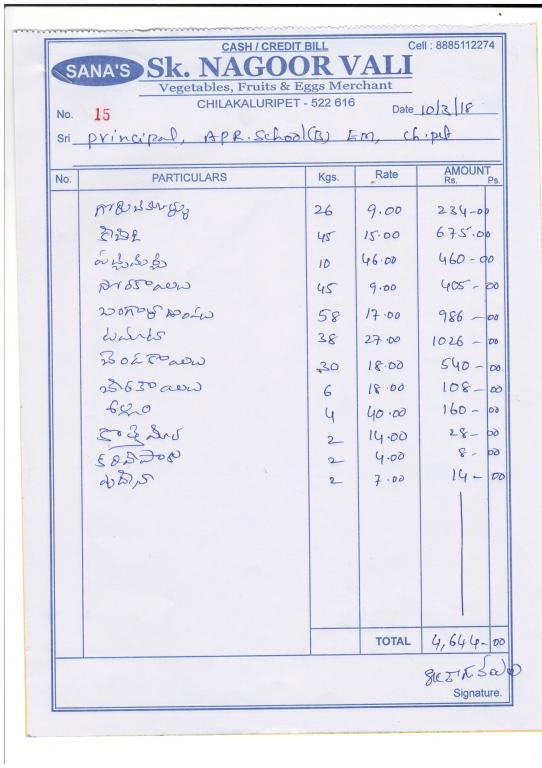 CASH / CREDIT BILL Cell : 8885112274
SANA'S Sk. NAGOOR VALI
Vegetables, Fruits & Eggs Merchant
CHILAKALURIPET - 522 616
No. 15 Date 10/3/18
Sri Principal, A.P.R. School (B) EM, Ch.pet
No. PARTICULARS Kgs. Rate AMOUNT Rs. Ps.
26 9.00 234-00
45 15.00 675.00
పచ్చిమిర్చి 10 46.00 460-00
సొరకాయలు 45 9.00 405-00
బంగాళదుంపలు 58 17.00 986-00
టమాటా 38 27.00 1026-00
బెండకాయలు 30 18.00 540-00
బీరకాయలు 6 18.00 108-00
అల్లం 4 40.00 160-00
కొత్తిమీర 2 14.00 28-00
కరివేపాకు 2 4.00 8-00
పుదీనా 2 7.00 14-00
TOTAL 4,644-00
Signature.